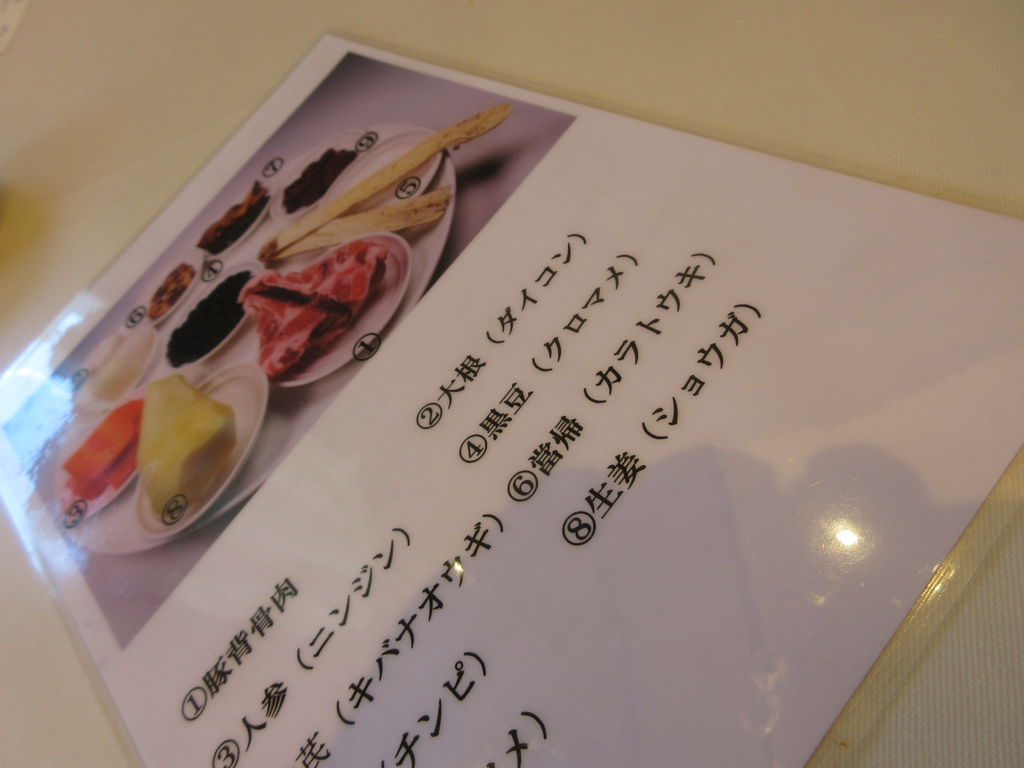 ①豚背骨肉
②大根（ダイコン）
③人参（ニンジン）
④黒豆（クロマメ）
芪（キバナオウギ）
⑥當帰（カラトウキ）
チンピ）
⑧生姜（ショウガ）
メ）
⑨
⑦
⑤
④
⑥
①
③
⑧